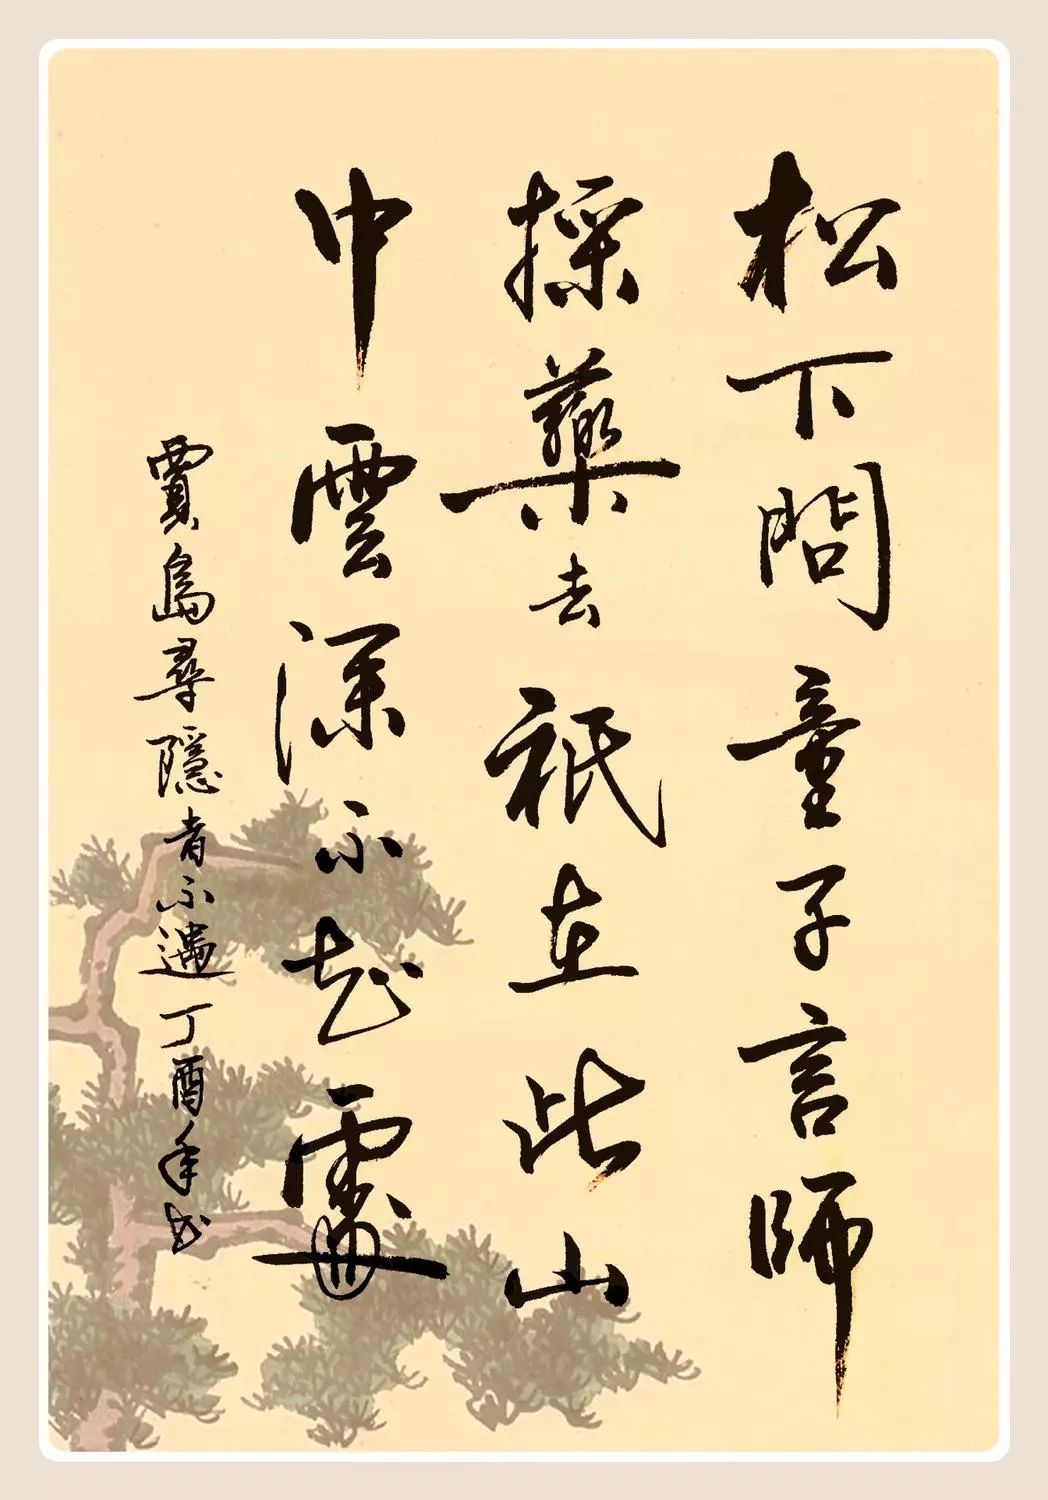 松下問童子言師
採藥去祇在此山
中雲深不知處
賈島尋隱者不遇丁酉年書